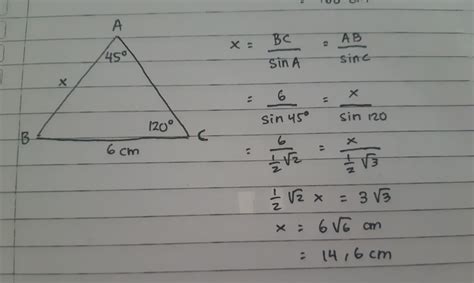 A
45°
x
120°
B
C
6 cm
x = BC/sin A = AB/sin C
= 6/sin 45° = x/sin 120
= 6/½√2 = x/½√3
½√2 x = 3√3
x = 6√6 cm
= 14,6 cm